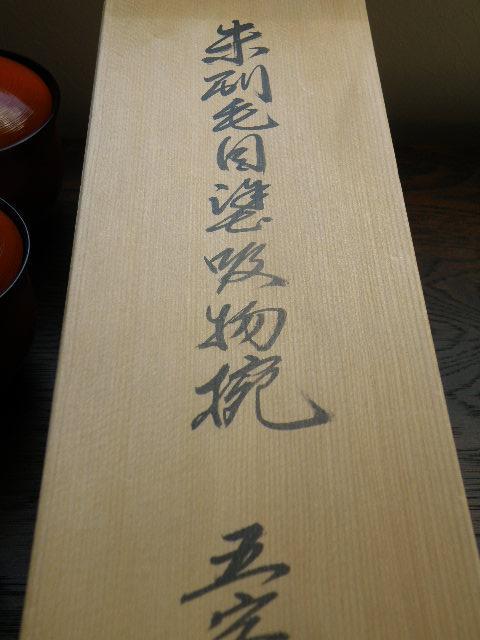 朱刷毛目塗吸物椀
五客